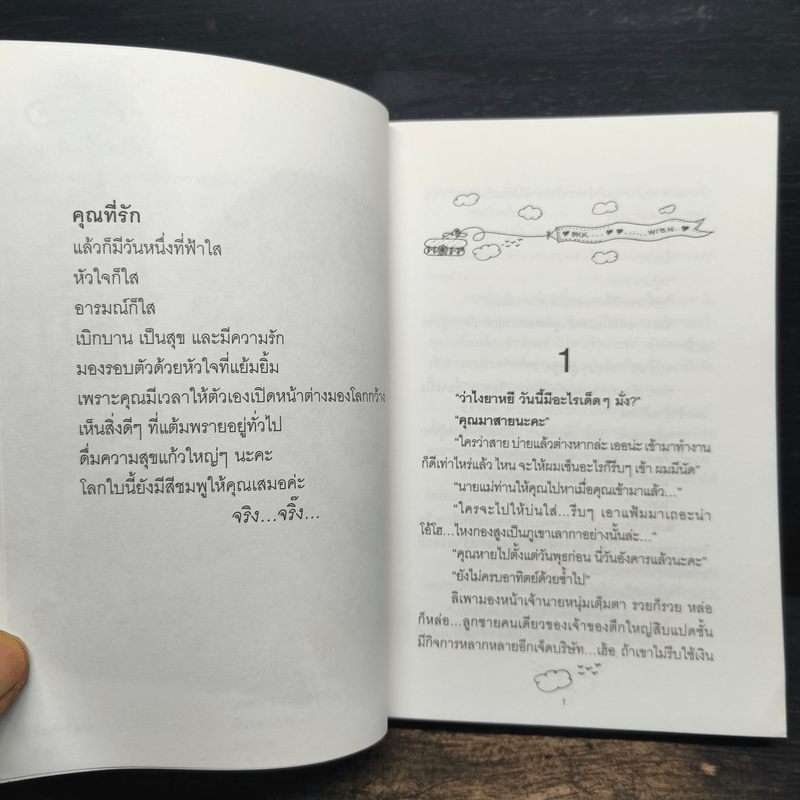 คุณที่รัก
แล้วก็มีวันหนึ่งที่ฟ้าใส
หัวใจก็ใส
อารมณ์ก็ใส
เบิกบาน เป็นสุข และมีความรัก
มองรอบตัวด้วยหัวใจที่แย้มยิ้ม
เพราะคุณมีเวลาให้ตัวเองเปิดหน้าต่างมองโลกกว้าง
เห็นสิ่งดีๆ ที่แต้มพรายอยู่ทั่วไป
ดื่มความสุขแก้วใหญ่ๆ นะคะ
โลกใบนี้ยังมีสีชมพูให้คุณเสมอค่ะ
จริง...จริ๊ง...
BKK...♥♥......WIEN...♥
1
“ว่าไงยาหยี วันนี้มีอะไรเด็ดๆ มั่ง?”
“คุณมาสายนะคะ”
“ใครว่าสาย บ่ายแล้วต่างหากล่ะ เออน่ะ เข้ามาทำงาน
ก็ดีเท่าไหร่แล้ว ไหน จะให้ผมเซ็นอะไรก็รีบๆ เข้า ผมมีนัด”
“นายแม่ท่านให้คุณไปหาเมื่อคุณเข้ามาแล้ว...”
“ใครจะไปให้บ่นใส่...รีบๆ เอาแฟ้มมาเถอะน่า
โอ้โฮ...ไหงกองสูงเป็นภูเขาเลากาอย่างนั้นล่ะ...”
“คุณหายไปตั้งแต่วันพุธก่อน นี่วันอังคารแล้วนะคะ”
“ยังไม่ครบอาทิตย์ด้วยซ้ำไป”
ลิเพามองหน้าเจ้านายหนุ่มเต็มตา รวยก็รวย หล่อ
ก็หล่อ...ลูกชายคนเดียวของเจ้าของตึกใหญ่สิบแปดชั้น
มีกิจการหลากหลายอีกเจ็ดบริษัท...เฮ้อ ถ้าเขาไม่รีบใช้เงิน
1